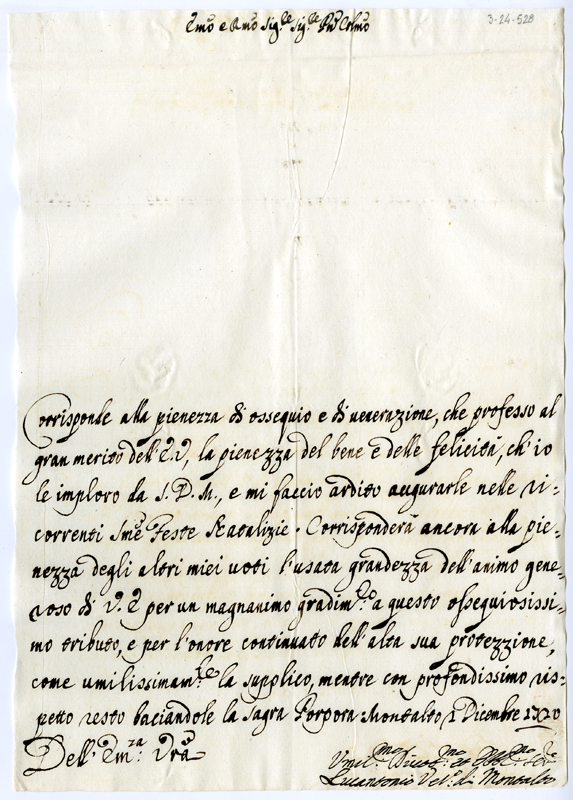 3-24-528
Emo e Rmo Sig.re Sig.re Pne Colmo
Corrisponde alla pienezza di ossequio e di ueneraZione, che professo al
gran merito dell'E.V, la pienezza del bene e delle felicità, ch'io
le imploro da S.D.M., e mi faccio ardito augurarle nelle ri-
correnti Sme Feste Natalizie. Corrisponderà ancora alla pie-
nezza degli altri miei uoti l'usata grandezza dell'animo gene-
roso di V.E per un magnanimo gradim.to a questo ossequiosissi-
mo tributo, e per l'onore continuato dell'alta sua protezzione,
come umilissimam.te la supplico, mentre con profondissimo ris-
petto resto baciandole la Sagra Porpora Montalto 1 Dicembre 1720
Dell' Em.za Vra
Umil.mo Diuot.mo et Obb.mo Ser
Lucantonio Ve.o di Montalto